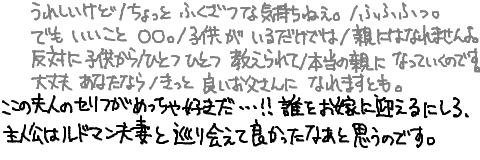 うれしいけど/ちょっと ふくざつな気持ちねぇ。/ふふふっ。
でも いいこと ○○。/子供が いるだけでは/親にはなれませんよ。
反対に 子供から/ひとつ ひとつ 教えられて/本当の親に なっていくのです。
大丈夫 あなたなら/きっと 良いお父さんに なれますとも。
ここの夫人のセリフがめっちゃ好きだ…!! 誰をお嫁に迎えるにしろ、
主人公はルドマン夫妻と巡り会えて良かったなあと思うのです。